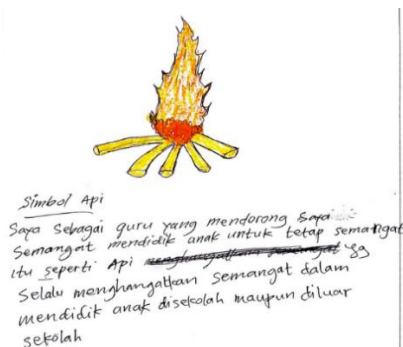 Simbol Api
Saya sebagai guru yang mendorong saya
Semangat mendidik anak untuk tetap semangat
itu seperti Api yg
Selalu menghangatkan semangat dalam
mendidik anak disekolah maupun diluar
sekolah